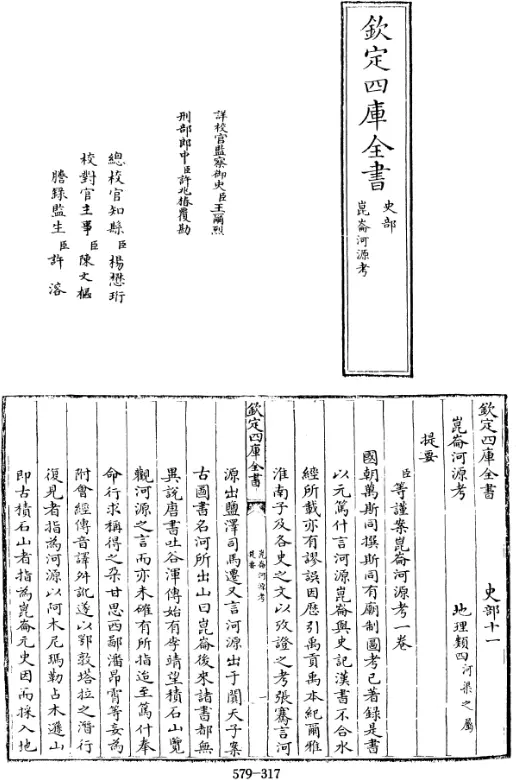 欽定四庫全書
史部
崑崙河源考
詳校官監察御史臣王爾烈
刑部郎中臣許兆椿覆勘
總校官知縣臣楊懋珩
校對官主事臣陳文樞
謄錄監生臣許溶
欽定四庫全書 史部十一
崑崙河源考 地理類四河渠之屬
提要
臣等謹案崑崙河源考一卷
國朝萬斯同撰斯同有廟制圖考已著錄是書
以元篤什言河源崑崙與史記漢書不合水
經所載亦有謬誤因歴引禹貢禹本紀爾雅
淮南子及各史之文以攷證之考張騫言河
欽定四庫全書
崑崙河源考
提要
一
源出鹽澤司馬遷又言河源出于闐天子案
古圖書名河所出山曰崑崙後來諸書都無
異說唐書吐谷渾傳始有李靖望積石山覽
觀河源之言而亦未確有所指迨至篤什奉
命行求稱得之朶甘思西鄙潘昂霄等妄為
附會經傳音譯舛訛遂以鄂敦塔拉之潛行
復見者指為河源以阿木尼瑪勒占木遜山
即古積石山者指為崑崙元史因而採入地
579-317